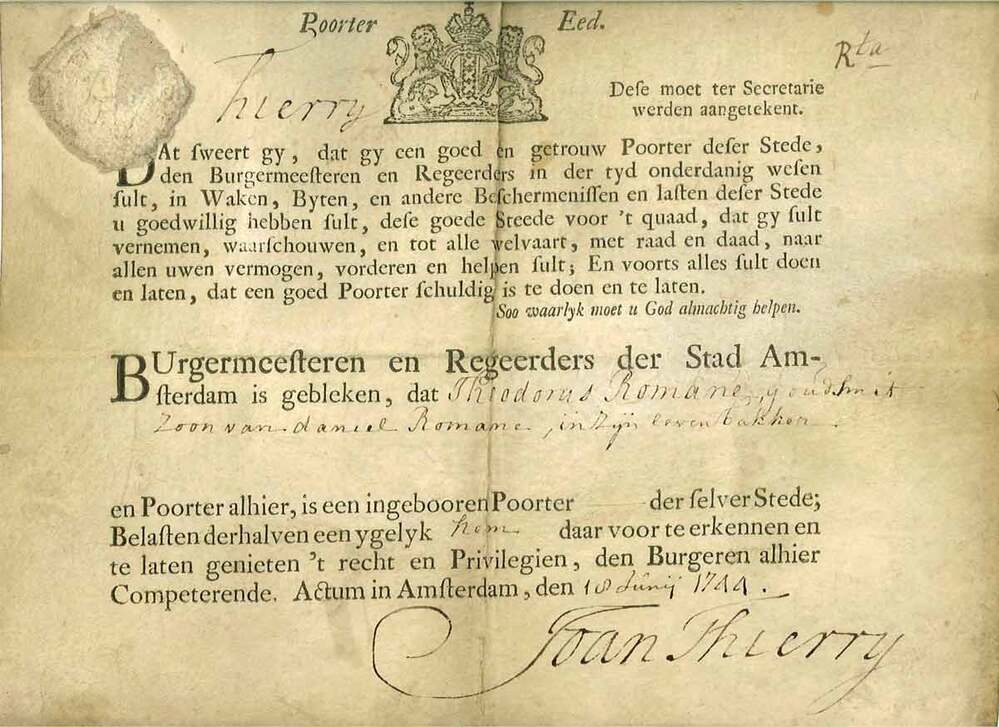 Poorter Eed.
Rta
Thierry
Deſe moet ter Secretarie
werden aangetekent.
DAt ſweert gy, dat gy een goed en getrouw Poorter deſer Stede,
den Burgermeeſteren en Regeerders in der tyd onderdanig weſen
ſult, in Waken, Byten, en andere Beſchermeniſſen en laſten deſer Stede
u goedwillig hebben ſult, deſe goede Steede voor 't quaad, dat gy ſult
vernemen, waarſchouwen, en tot alle welvaart, met raad en daad, naar
allen uwen vermogen, vorderen en helpen ſult; En voorts alles ſult doen
en laten, dat een goed Poorter ſchuldig is te doen en te laten.
Soo waarlyk moet u God almachtig helpen.
BUrgermeeſteren en Regeerders der Stad Am-
ſterdam is gebleken, dat Theodorus Romane, goudsmit
Zoon van daniel Romane, in Zijn leven bakker
en Poorter alhier, is een ingebooren Poorter der ſelver Stede;
Belaſten derhalven een ygelyk hem daar voor te erkennen en
te laten genieten 't recht en Privilegien, den Burgeren alhier
Competerende. Actum in Amſterdam, den 18 Junij 1744.
Joan Thierry